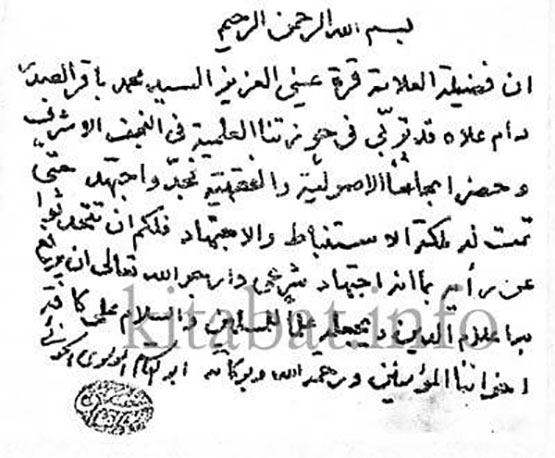 بسم الله الرحمن الرحيم
ان فضيلة العلامة قرة عيني العزيز السيد محمد باقر الصدر
دام علاه قد تربى في حوزتنا العلمية في النجف الاشرف
وحضر ابحاثنا الاصولية والفقهية بجد واجتهد حتى
تمت له ملكة الاستنباط والاجتهاد فلكم ان تتحدثوا
عن رأيه بانه اجتهاد شرعي وارجو الله تعالى ان يرفع
به اعلام الدين ويجعله علما للمسلمين والسلام على كافة
اخواننا المؤمنين ورحمة الله وبركاته ابو القاسم الموسوي الخوئي
kitabat.info